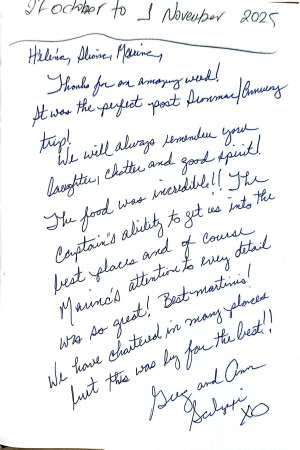 27 October to 1 November 2025
Helena, Marina,
Thanks for an amazing week!
It was the perfect post Ironman/
trip!
We will always remember your
laughter, chatter and good spirit!
The food was incredible!! The
Captain's ability to get us into the
best places and of course
Marina's attention to every detail
was so great! Best martinis!
We have chartered in many places
but this was by far the best!!
Greg and Ann
XO